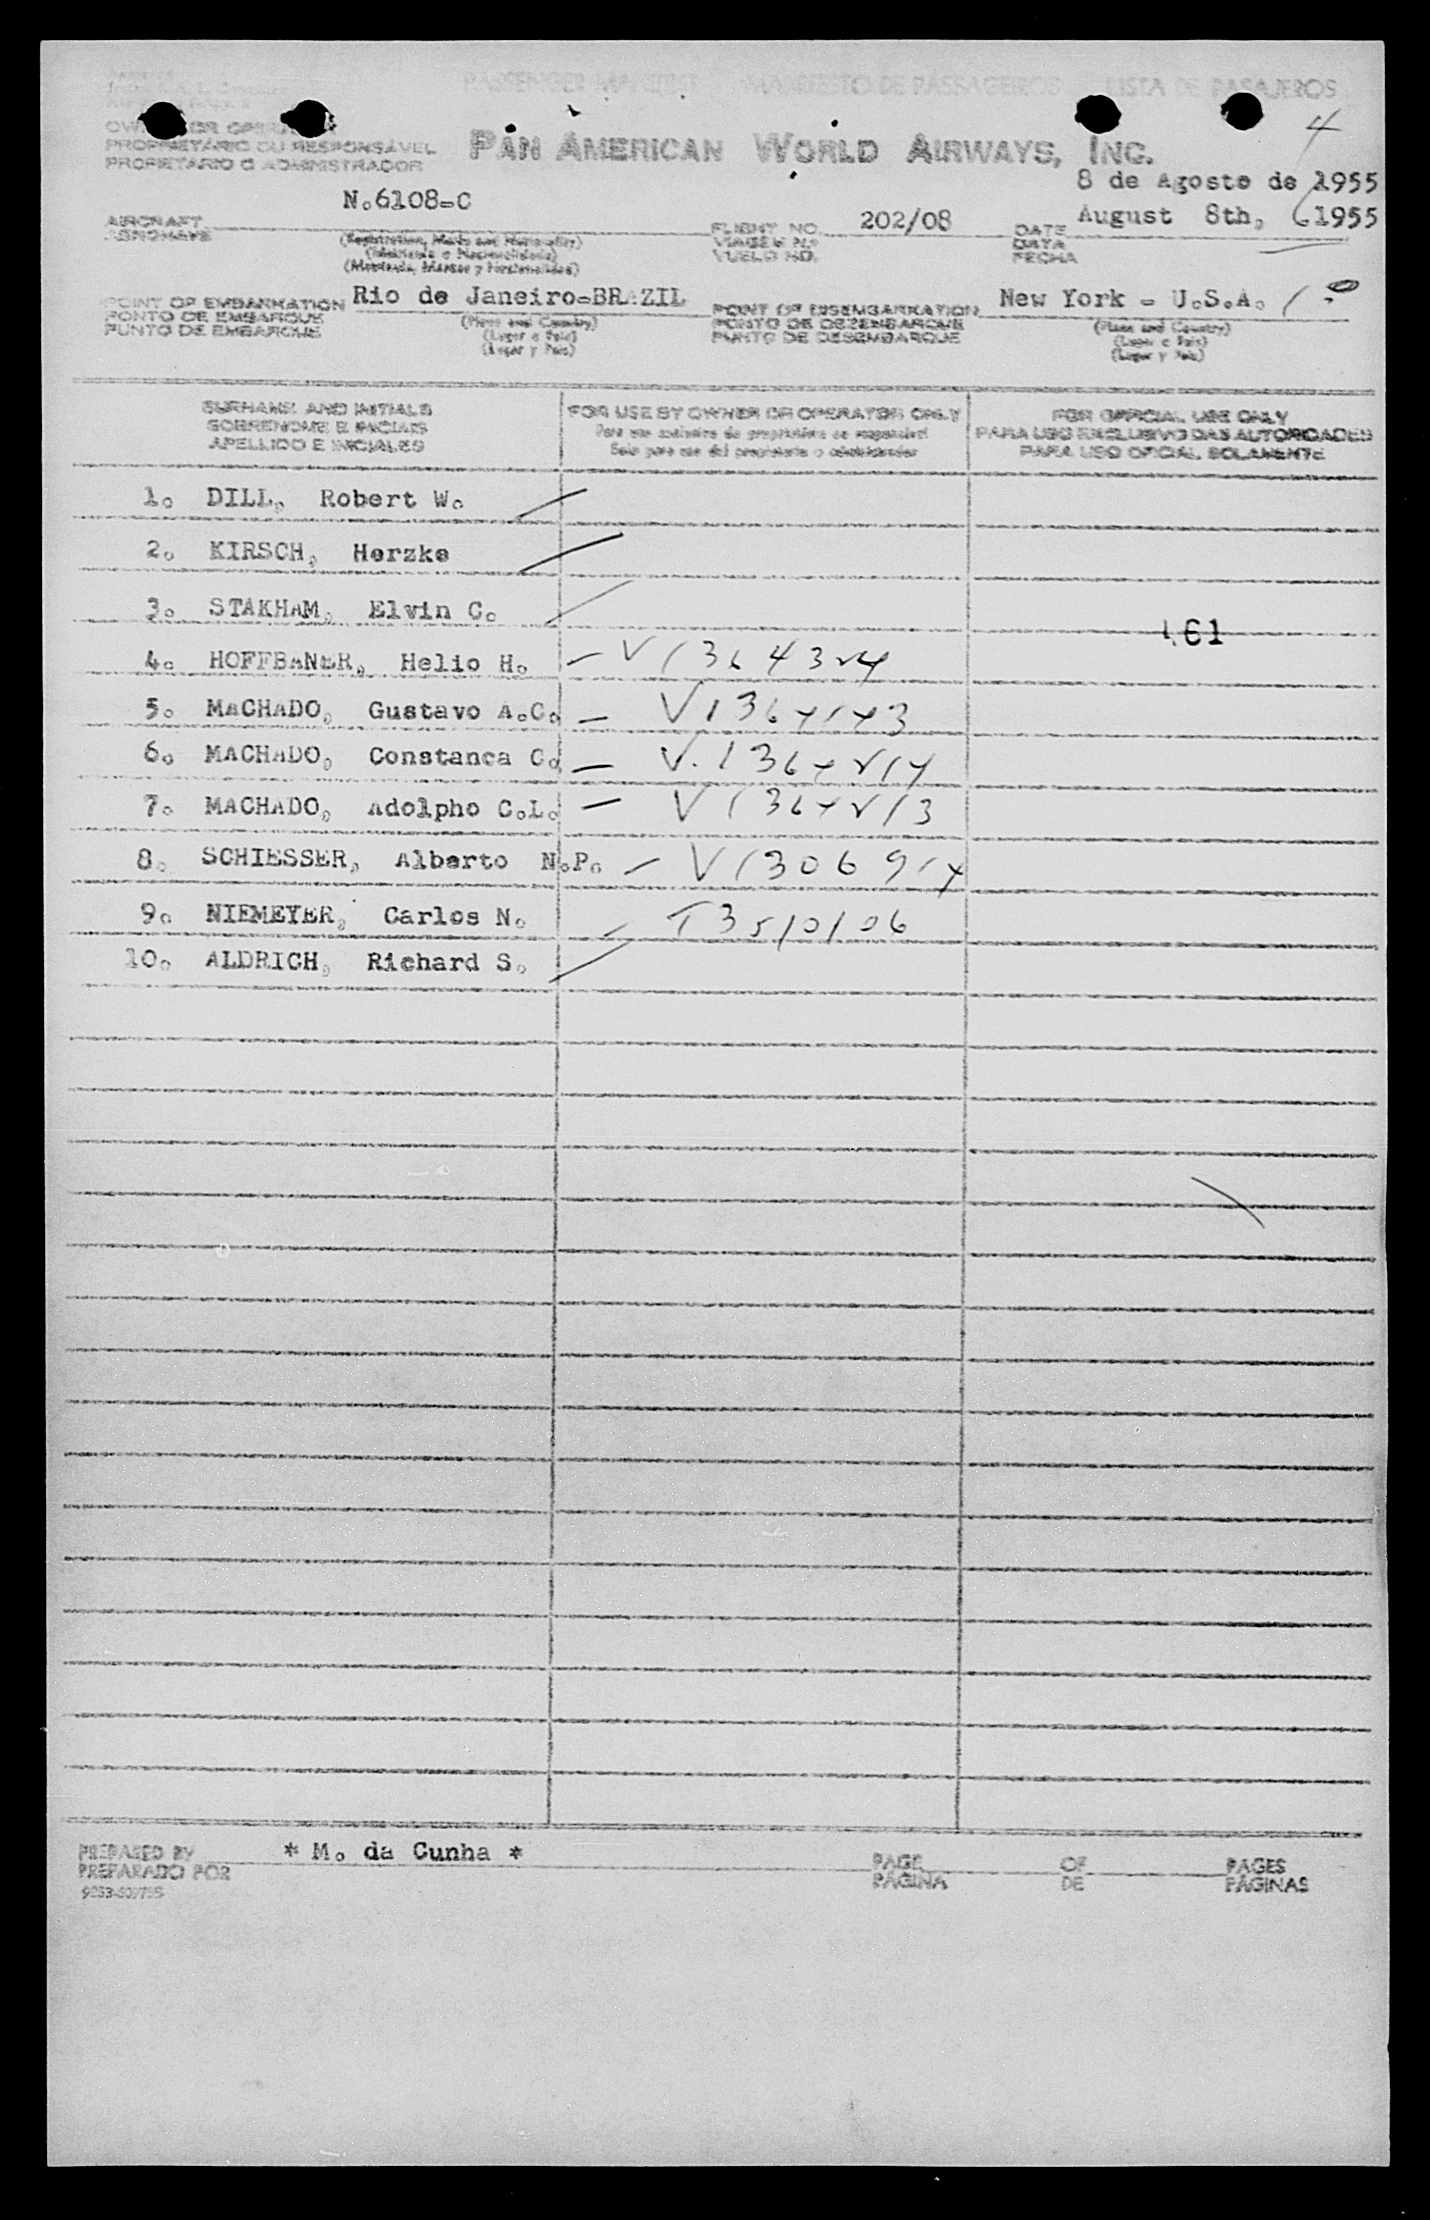 PASSENGER MANIFEST MANIFESTO DE PASSAGEIROS LISTA DE PASAJEROS
OWNER OR OPERATOR
PROPRIETÁRIO OU RESPONSÁVEL
PROPIETARIO O ADMINISTRADOR
PAN AMERICAN WORLD AIRWAYS, INC.
4
8 de Agosto de 1955
N.6108-C
AIRCRAFT
AERONAVE
(Registration, Marks and Nationality)
FLIGHT NO. 202/08
VIAGEM N.º
VUELO NO.
DATE August 8th, 1955
DATA
FECHA
POINT OF EMBARKATION Rio de Janeiro-BRAZIL
PONTO DE EMBARQUE
PUNTO DE EMBARQUE
(Place and Country)
(Lugar e País)
(Lugar y País)
POINT OF DISEMBARKATION New York - U.S.A.
PONTO DE DESEMBARQUE
PUNTO DE DESEMBARQUE
(Place and Country)
(Lugar e País)
(Lugar y País)
SURNAME AND INITIALS
SOBRENOME E INICIAIS
APELLIDO E INICIALES
FOR USE BY OWNER OR OPERATOR ONLY
Para uso exclusivo do proprietário ou responsável
Solo para uso del propietario o administrador
FOR OFFICIAL USE ONLY
PARA USO EXCLUSIVO DAS AUTORIDADES
PARA USO OFICIAL SOLAMENTE
1. DILL, Robert W.
2. KIRSCH, Herzke
3. STAKHAM, Elvin C.
61
4. HOFFBANER, Helio H.
5. MACHADO, Gustavo A.C.
6. MACHADO, Constanca C.
7. MACHADO, Adolpho C.L.
8. SCHIESSER, Alberto N.P.
9. NIEMEYER, Carlos N. - T35/0/06
10. ALDRICH, Richard S.
PREPARED BY * M. da Cunha *
PREPARADO POR
PAGE OF PAGES
PÁGINA DE PÁGINAS